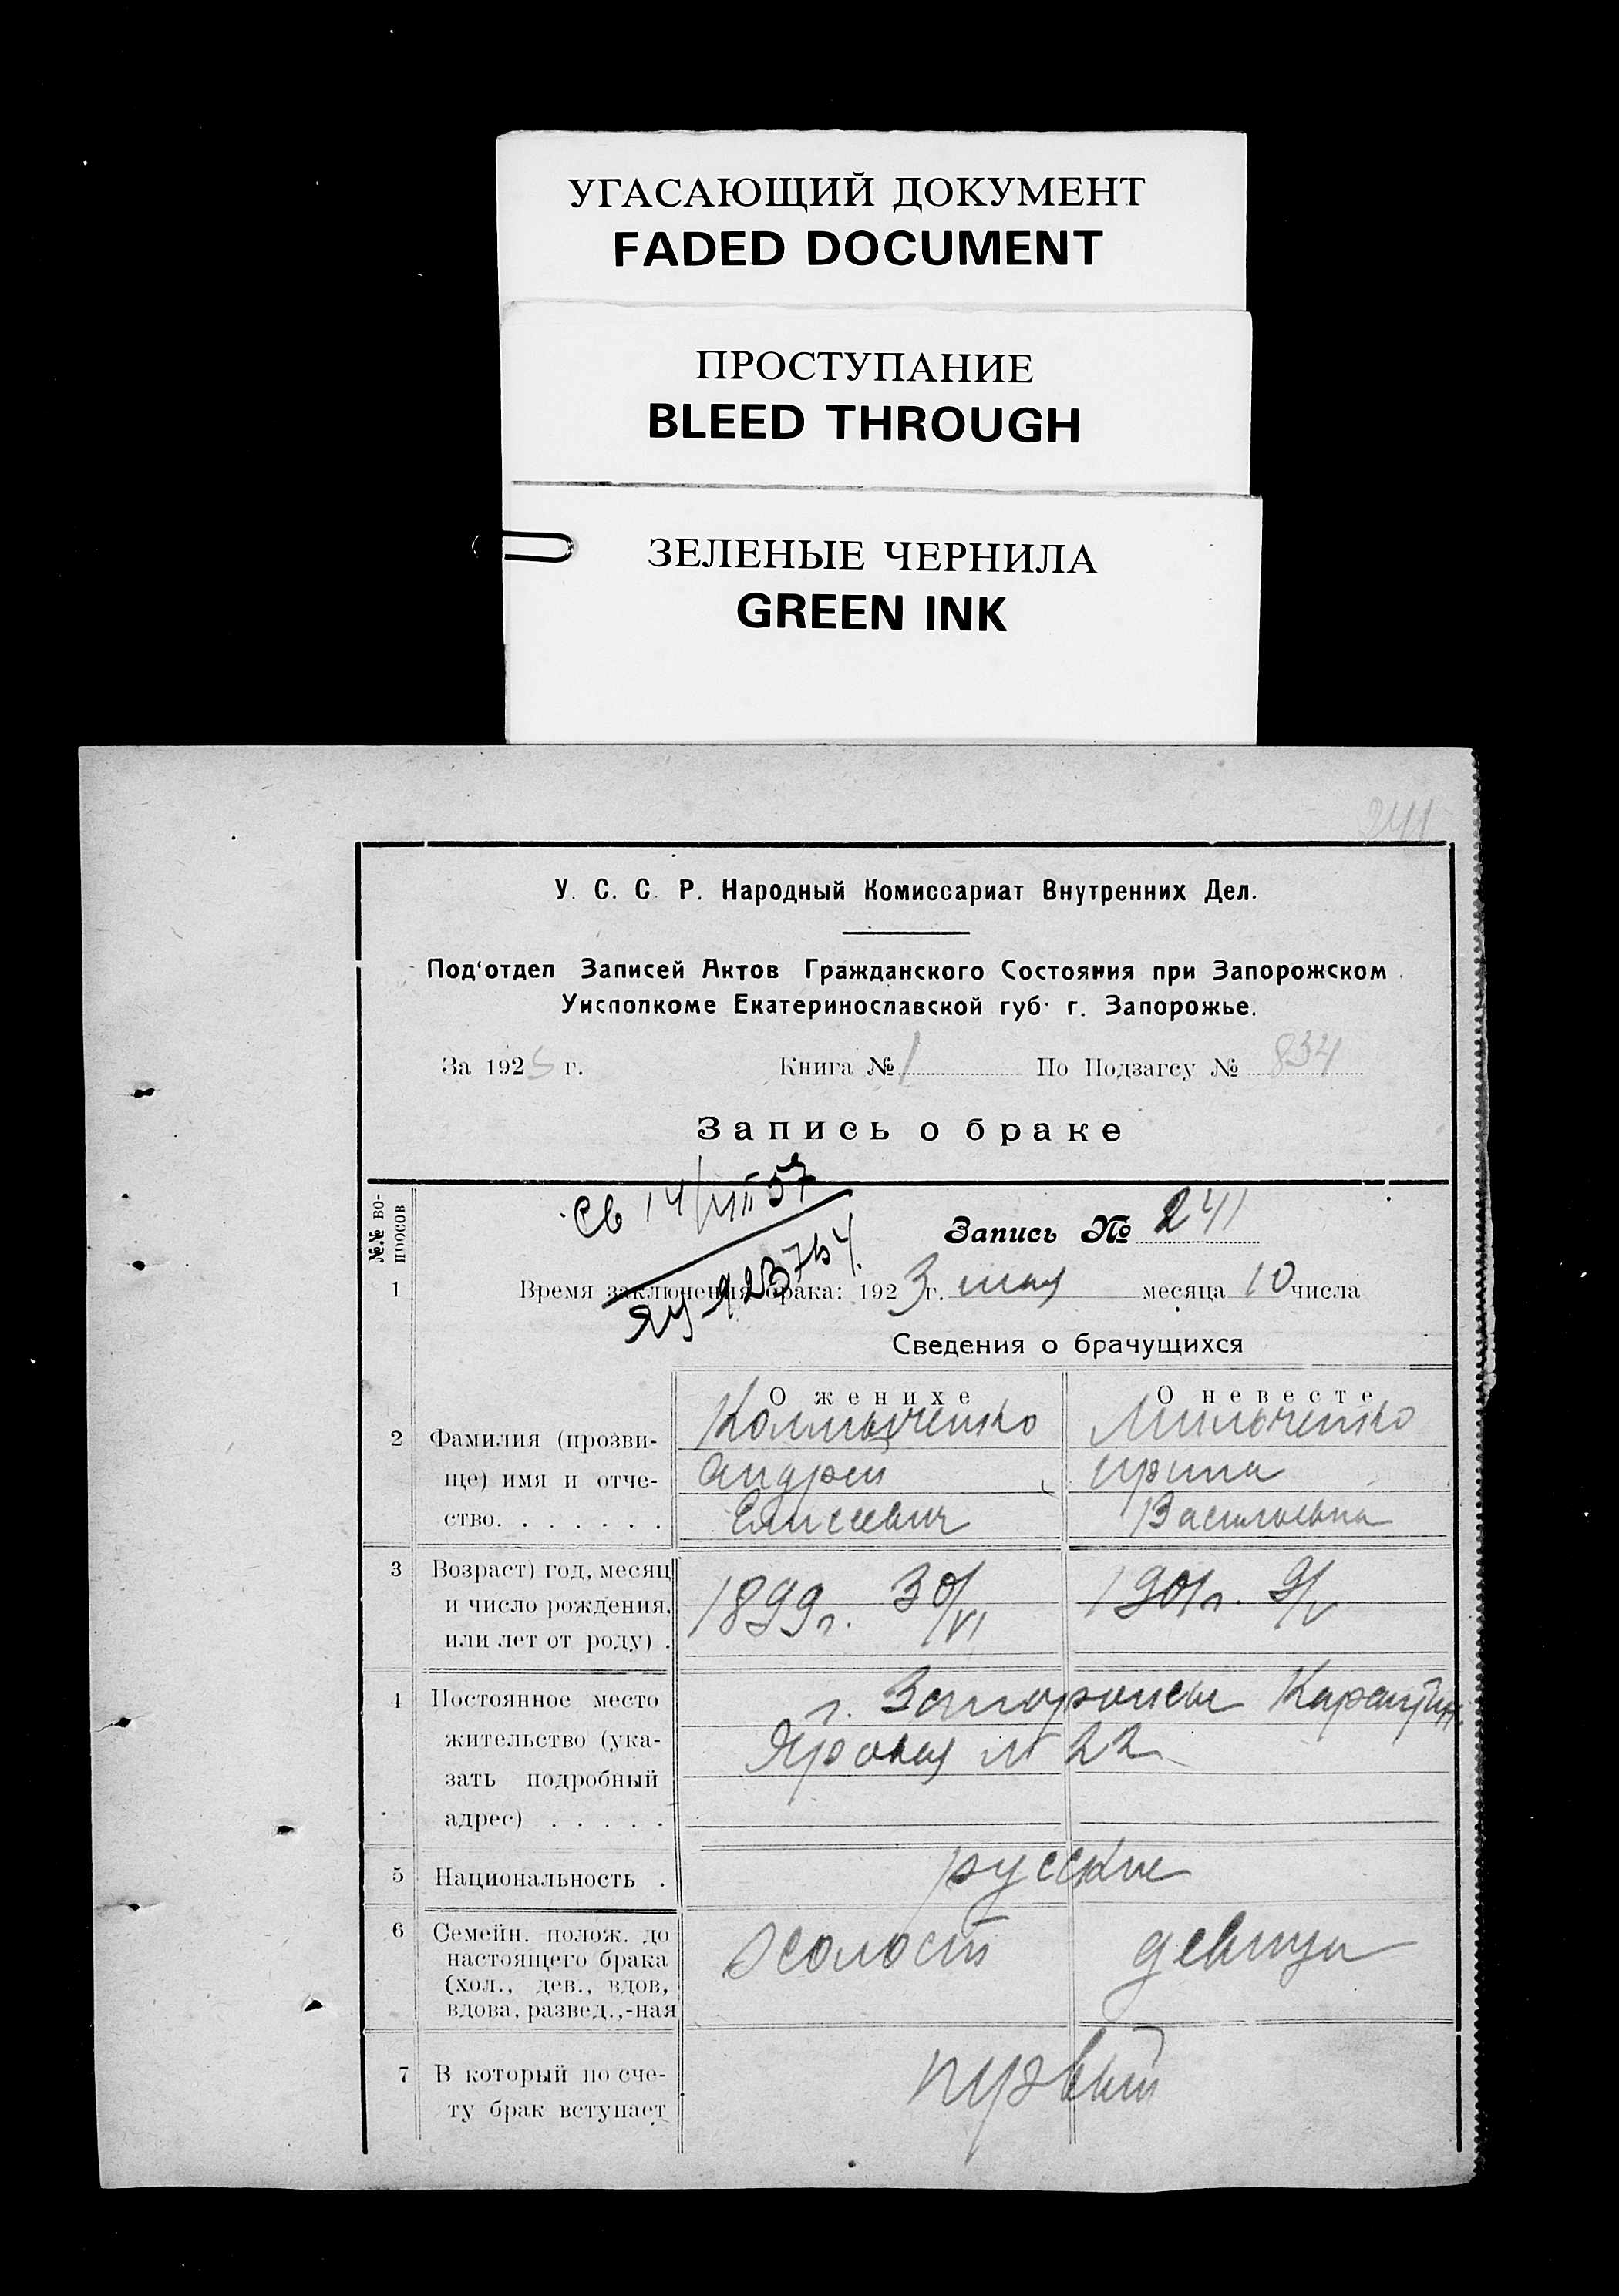 УГАСАЮЩИЙ ДОКУМЕНТ
FADED DOCUMENT
ПРОСТУПАНИЕ
BLEED THROUGH
ЗЕЛЕНЫЕ ЧЕРНИЛА
GREEN INK
241
У. С. С. Р. Народный Комиссариат Внутренних Дел.
Под'отдел Записей Актов Гражданского Состояния при Запорожском
Уисполкоме Екатеринославской губ. г. Запорожье.
За 1923 г. Книга № 1 По Подзагсу № 834
Запись о браке
№.№ во-
просов
Св 14/VIII 57
Запись № 241
1 Время заключения брака: 1923 г. мая месяца 10 числа
ЯУ 923754
Сведения о брачущихся
О женихе О невесте
2 Фамилия (прозви- Мильченко
ще) имя и отче- Андрей Ирина
ство. . . . . . . Елисеевич Васильевна
3 Возраст) год, месяц
и число рождения, 1899 г. 30/VI 1901 г. 9/V
или лет от роду) .
4 Постоянное место г. Запорожье Карантин.
жительство (ука- Яровая № 22
зать подробный
адрес) . . . . .
5 Национальность . русские
6 Семейн. полож. до
настоящего брака холост девица
(хол., дев., вдов,
вдова, развед.,-ная
7 В который по сче- первый
ту брак вступает